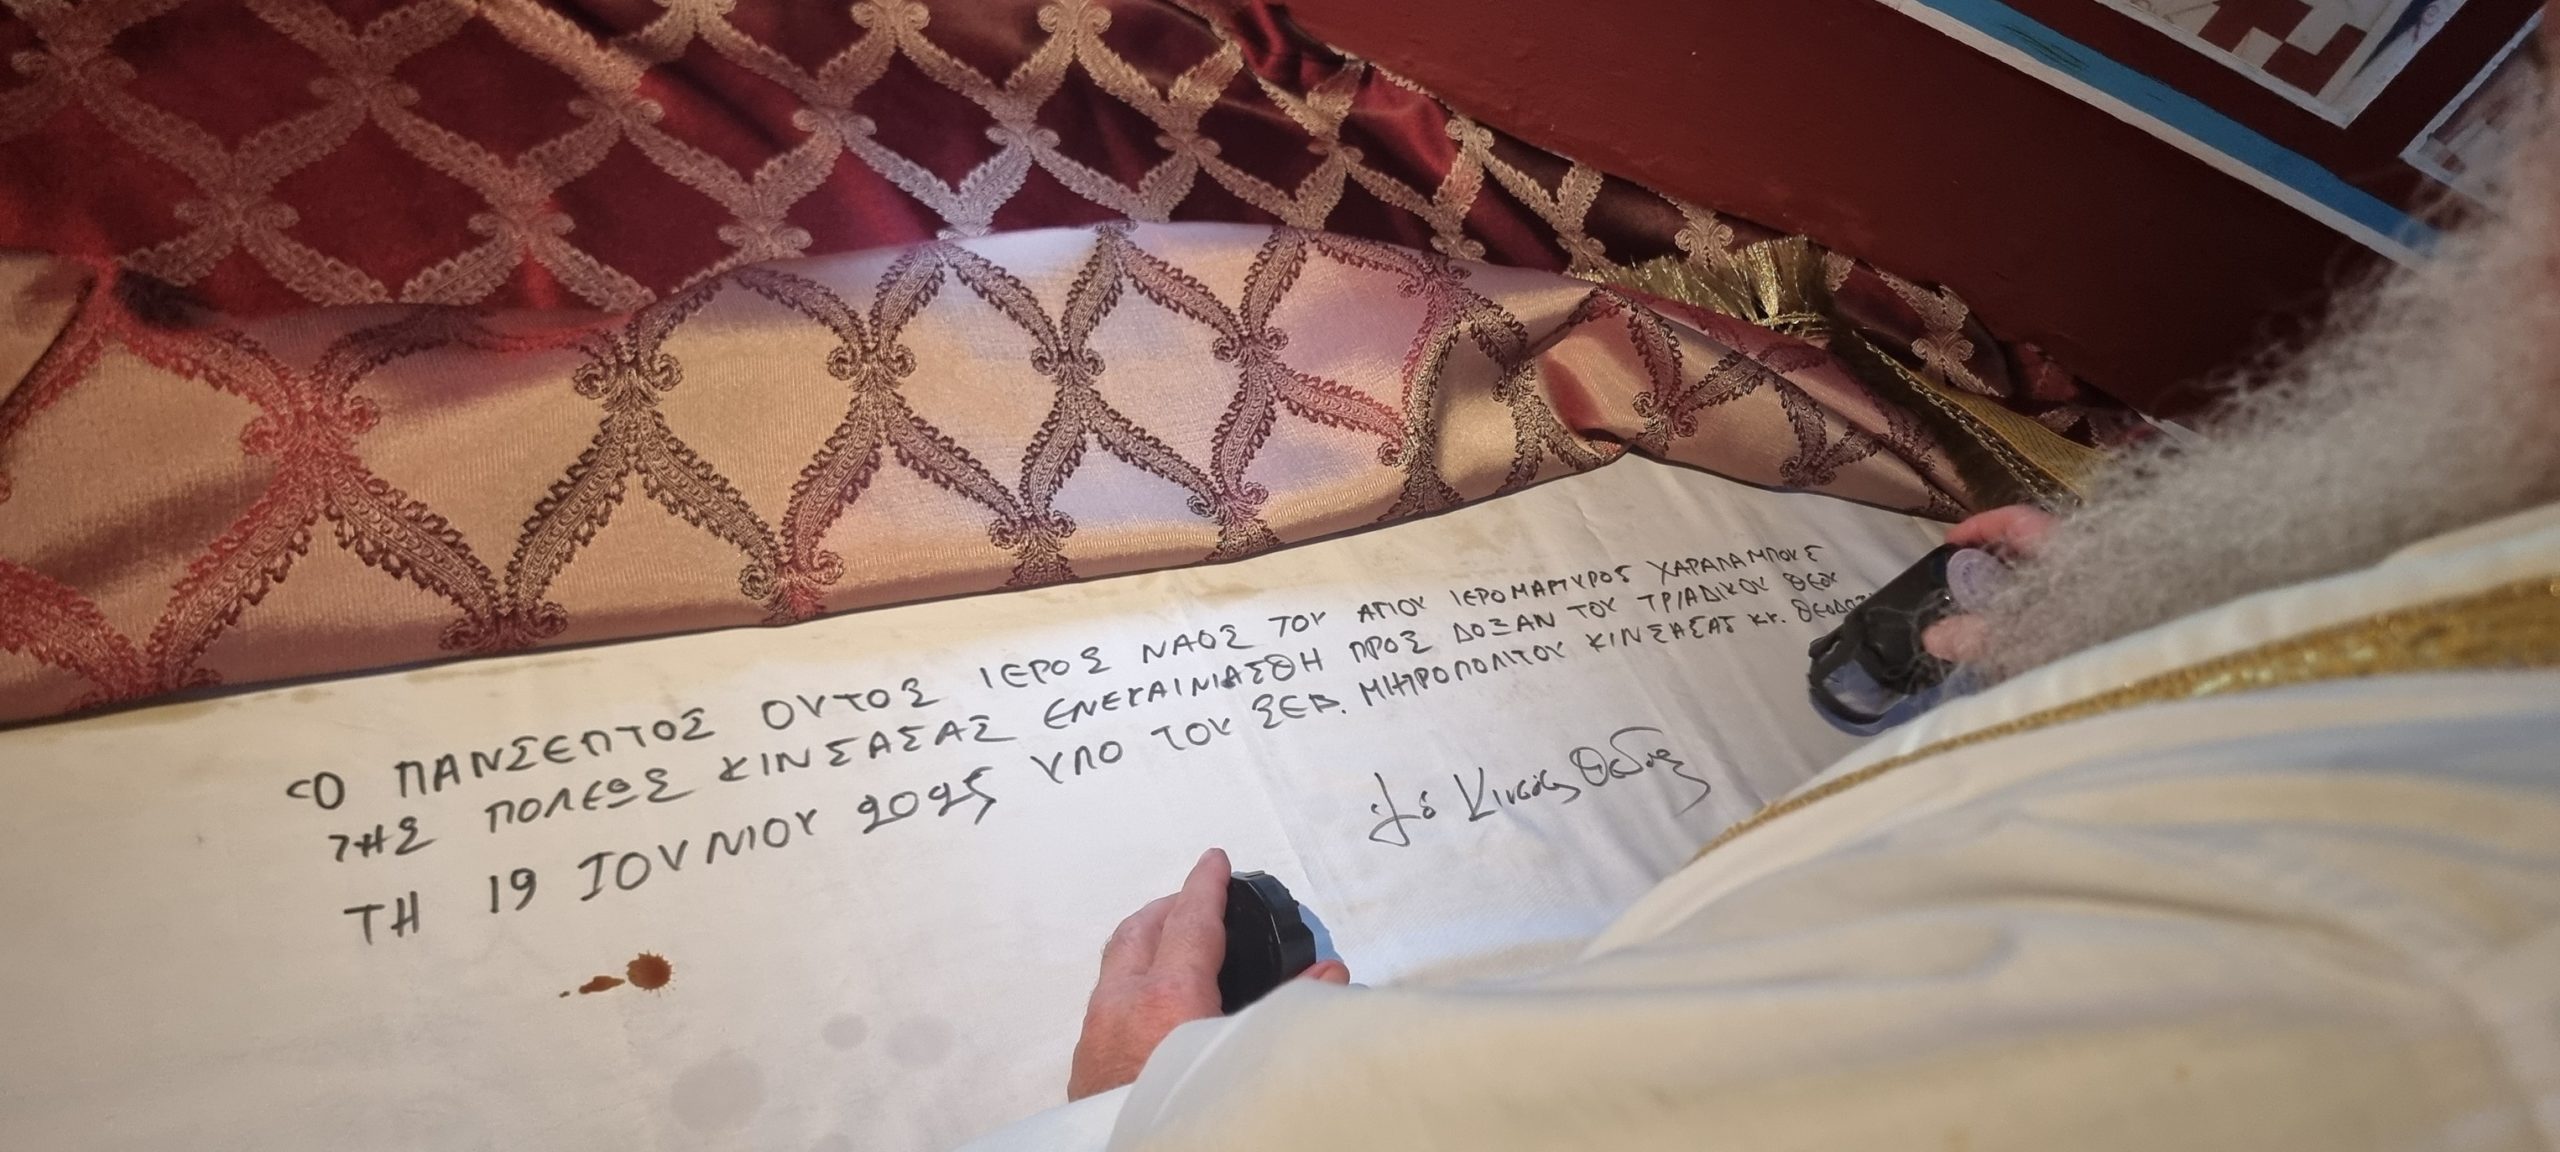 Ὁ ΠΑΝΣΕΠΤΟΣ ΟΥΤΟΣ ΙΕΡΟΣ ΝΑΟΣ ΤΟΥ ΑΓΙΟΥ ΙΕΡΟΜΑΡΤΥΡΟΣ ΧΑΡΑΛΑΜΠΟΥΣ
ΤΗΣ ΠΟΛΕΩΣ ΚΙΝΣΑΣΑΣ ΕΝΕΚΑΙΝΙΑΣΘΗ ΠΡΟΣ ΔΟΞΑΝ ΤΟΥ ΤΡΙΑΔΙΚΟΥ ΘΕΟΥ
ΤΗ 19 ΙΟΥΝΙΟΥ 2025 ΥΠΟ ΤΟΥ ΣΕΒ. ΜΗΤΡΟΠΟΛΙΤΟΥ ΚΙΝΣΑΣΑΣ κκ. ΘΕΟΔΟΣ